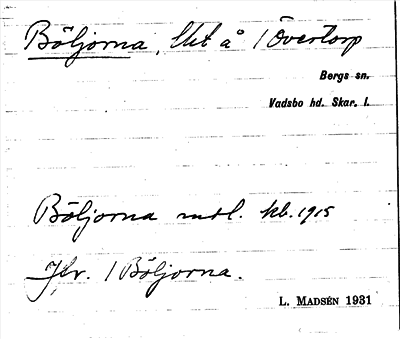 Böljorna, lht å 1 Övertorp
Bergs sn.
Vadsbo hd. Skar. l.
Böljorna mtl. kb. 1915
Jfr. 1 Böljorna.
L. MADSÉN 1931